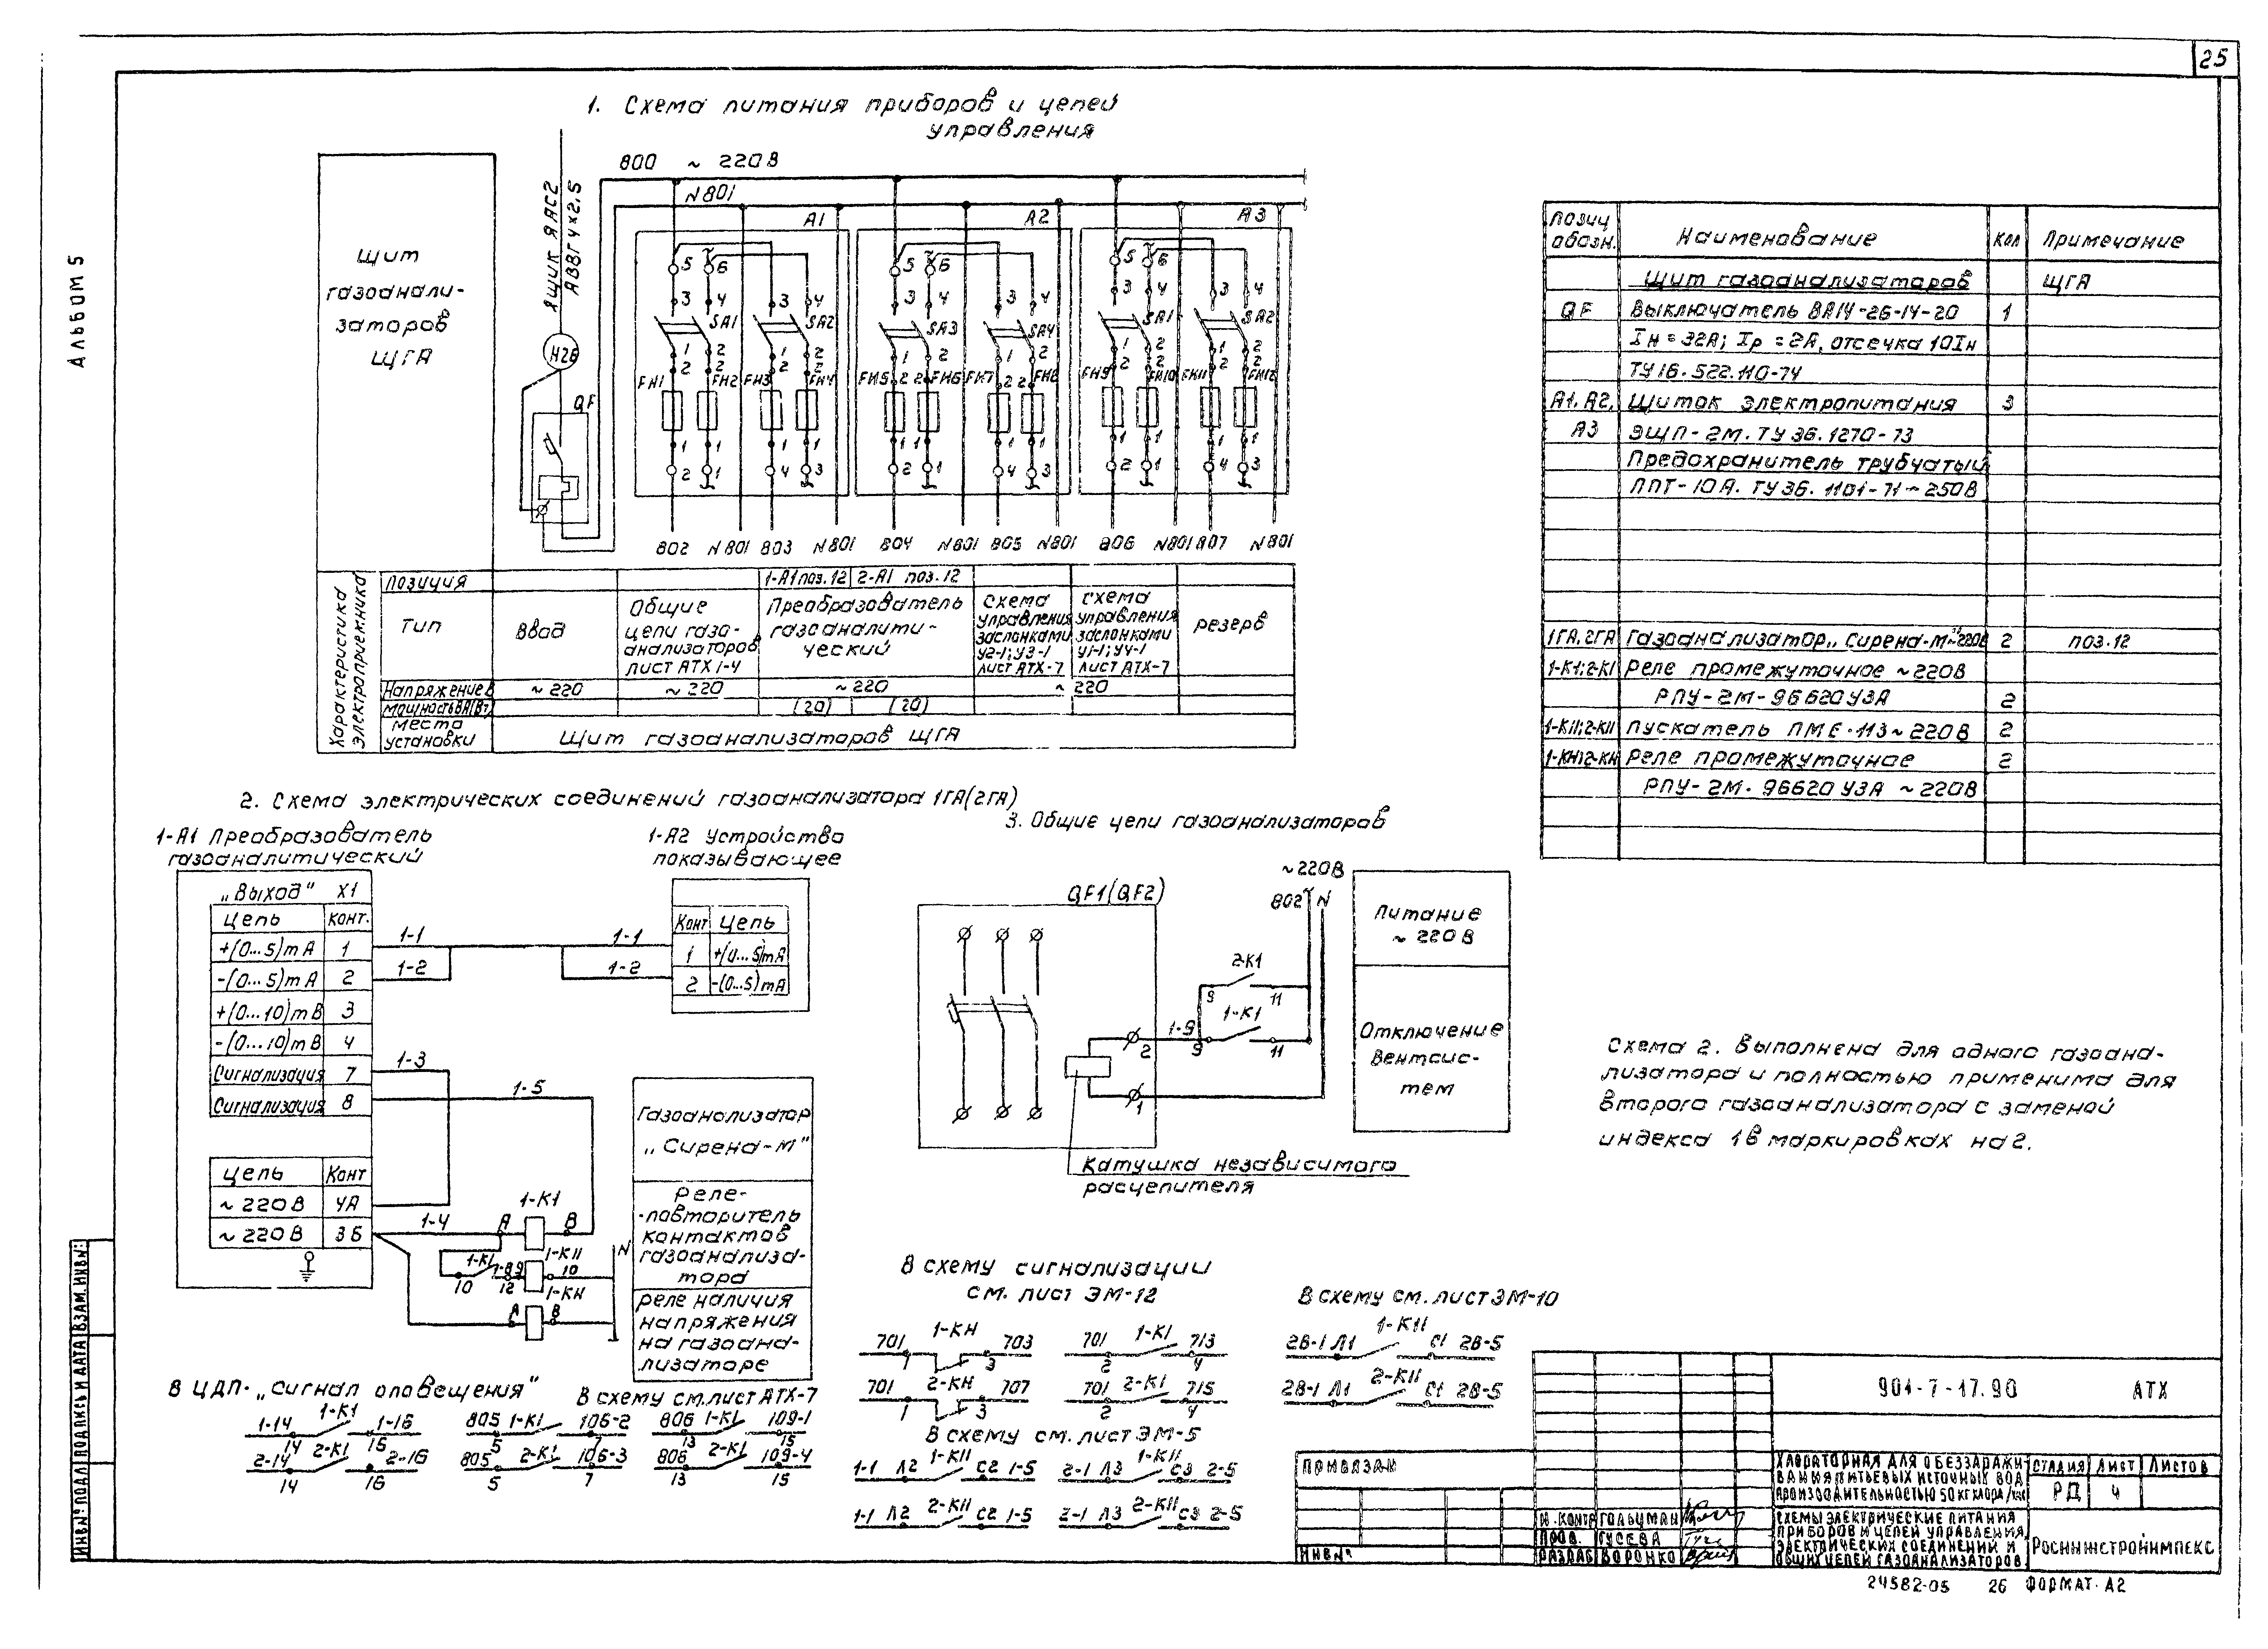 25
Альбом 5
1. Схема питания приборов и цепей
управления
Щит
газоанали-
заторов
ЩГА
Ящик ЯАС2
АВВГ 4×2,5
Н26
QF
800 ~ 220В
N801
А1
А2
А3
5 6 5 6 5 6
3 4 3 4 3 4 3 4 3 4 3 4
SA1 SA2 SA3 SA4 SA1 SA2
1 2 1 2 1 2 1 2 1 2 1 2
FH1 FH2 FH3 FH4 FH5 FH6 FH7 FH8 FH9 FH10 FH11 FH12
2 1 4 3 2 1 4 3 2 1 4 3
802 N801 803 N801 804 N801 805 N801 806 N801 807 N801
Характеристика
электроприемника
Позиция 1-А1 поз.12 2-А1 поз.12
Тип
Ввод
Общие
цепи газо-
анализаторов
лист АТХ1-4
Преобразователь
газоаналити-
ческий
схема
управления
заслонками
У2-1; У3-1
лист АТХ-7
схема
управления
заслонками
У1-1; У4-1
лист АТХ-7
резерв
Напряжение В ~ 220 ~ 220 ~ 220 ~ 220
Мощность ВА(Вт) (20) (20)
Место
установки
Щит газоанализаторов ЩГА
Позиц обозн. Наименование Кол Примечание
Щит газоанализаторов ЩГА
QF Выключатель ВА14-26-14-20 1
Iн = 32А; Iр = 2А, отсечка 10Iн
ТУ16.522.110-74
А1, А2, Щиток электропитания 3
А3 ЭЩП-2М. ТУ 36.1270-73
Предохранитель трубчатый
ППТ-10А. ТУ36.1101-71 ~ 250В
1ГА, 2ГА Газоанализатор „Сирена-М" ~220В 2 поз.12
1-К1; 2-К1 Реле промежуточное ~ 220В
РПУ-2М-96620 УЗА 2
1-К11; 2-К11 Пускатель ПМЕ-113 ~ 220В 2
1-КН; 2-КН Реле промежуточное 2
РПУ-2М-96620 УЗА ~ 220В
2. Схема электрических соединений газоанализатора 1ГА(2ГА)
1-А1 Преобразователь
газоаналитический
„Выход" Х1
Цепь Конт.
+(0...5)mA 1
-(0...5)mA 2
+(0...10)mВ 3
-(0...10)mВ 4
Сигнализация 7
Сигнализация 8
Цепь Конт
~ 220В 4А
~ 220В 3Б
1-1
1-2
1-3
1-5
1-4
1-А2 Устройство
показывающее
Конт Цепь
1 +(0...5)mA
2 -(0...5)mA
1-1
1-2
1-К1
А В
1-К1 1-89 1-К11
10 12 10
1-КН
А В
N
Газоанализатор
„Сирена-М"
Реле-
-повторитель
контактов
газоанализа-
тора
Реле наличия
напряжения
на газоана-
лизаторе
3. Общие цепи газоанализаторов
QF1 (QF2)
~220В
802 N
2-К1
9 11
1-9
1-К1
2 9 11
1
Катушка независимого
расцепителя
Питание
~ 220В
Отключение
Вентсис-
тем
Схема 2. Выполнена для одного газоана-
лизатора и полностью применима для
второго газоанализатора с заменой
индекса 1 в маркировках на 2.
В ЦДП- „Сигнал оповещения"
1-14 1-К1 1-16
14 15
2-14 2-К1 2-16
14 16
В схему см. лист АТХ-7
805 1-К1 106-2
5 7
806 1-К1 109-1
13 15
805 2-К1 106-3
5 7
806 2-К1 109-4
13 15
В схему сигнализации
см. лист ЭМ-12
701 1-КН 703
1 3
701 1-К1 713
2 4
701 2-КН 707
1 3
701 2-К1 715
2 4
В схему см. лист ЭМ-5
1-1 Л2 1-К11 С2 1-5
2-1 Л3 1-К11 С3 2-5
1-1 Л2 2-К11 С2 1-5
2-1 Л3 2-К11 С3 2-5
В схему см. лист ЭМ-10
28-1 Л1 1-К11 С1 28-5
28-1 Л1 2-К11 С1 28-5
Привязан
Инв №
901-7-17.90 АТХ
Хлораторная для обеззаражи-
вания питьевых источных вод
производительностью 50 кг хлора/час
Стадия Лист Листов
РД 4
Н.контр Гольцман
Пров. Гусева
Разраб Воронко
Схемы электрические питания
приборов и цепей управления,
электрических соединений и
общих цепей газоанализаторов.
Росинжстройимпекс
24582-05 26 Формат А2
Инв № подл Подпись и дата Взам. инв №